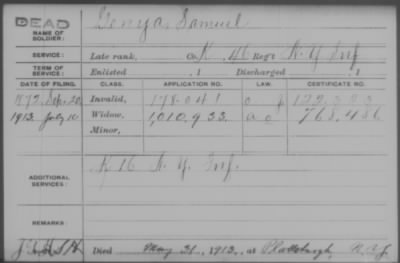 DEAD
NAME OF SOLDIER: Genya, Samuel
SERVICE: Late rank, Co. K, 46 Reg't N.Y. Inf
TERM OF SERVICE: Enlisted , 1 Discharged , 1
DATE OF FILING. CLASS. APPLICATION NO. LAW. CERTIFICATE NO.
Sep. 20 Invalid, 178.041
1913. July 10 Widow, 1,010,933 768,486
Minor,
ADDITIONAL SERVICES: K 16 N.Y. Inf.
REMARKS:
Died May 31, 1913, at Plattsburgh, N.Y.